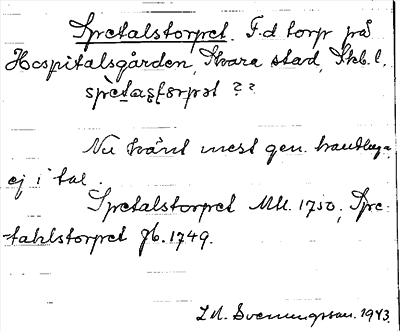 Spretalstorpet. F.d torp på
Hospitalsgården, Skara stad, Skb. l.
spre̍tas̨tɷrpət ??
Nu känt mest gen. handling-
ej i tal.
Spretalstorpet Mtl. 1750, Spre-
tahlstorpet fb. 1749.
I.M. Svenungsson. 1943.